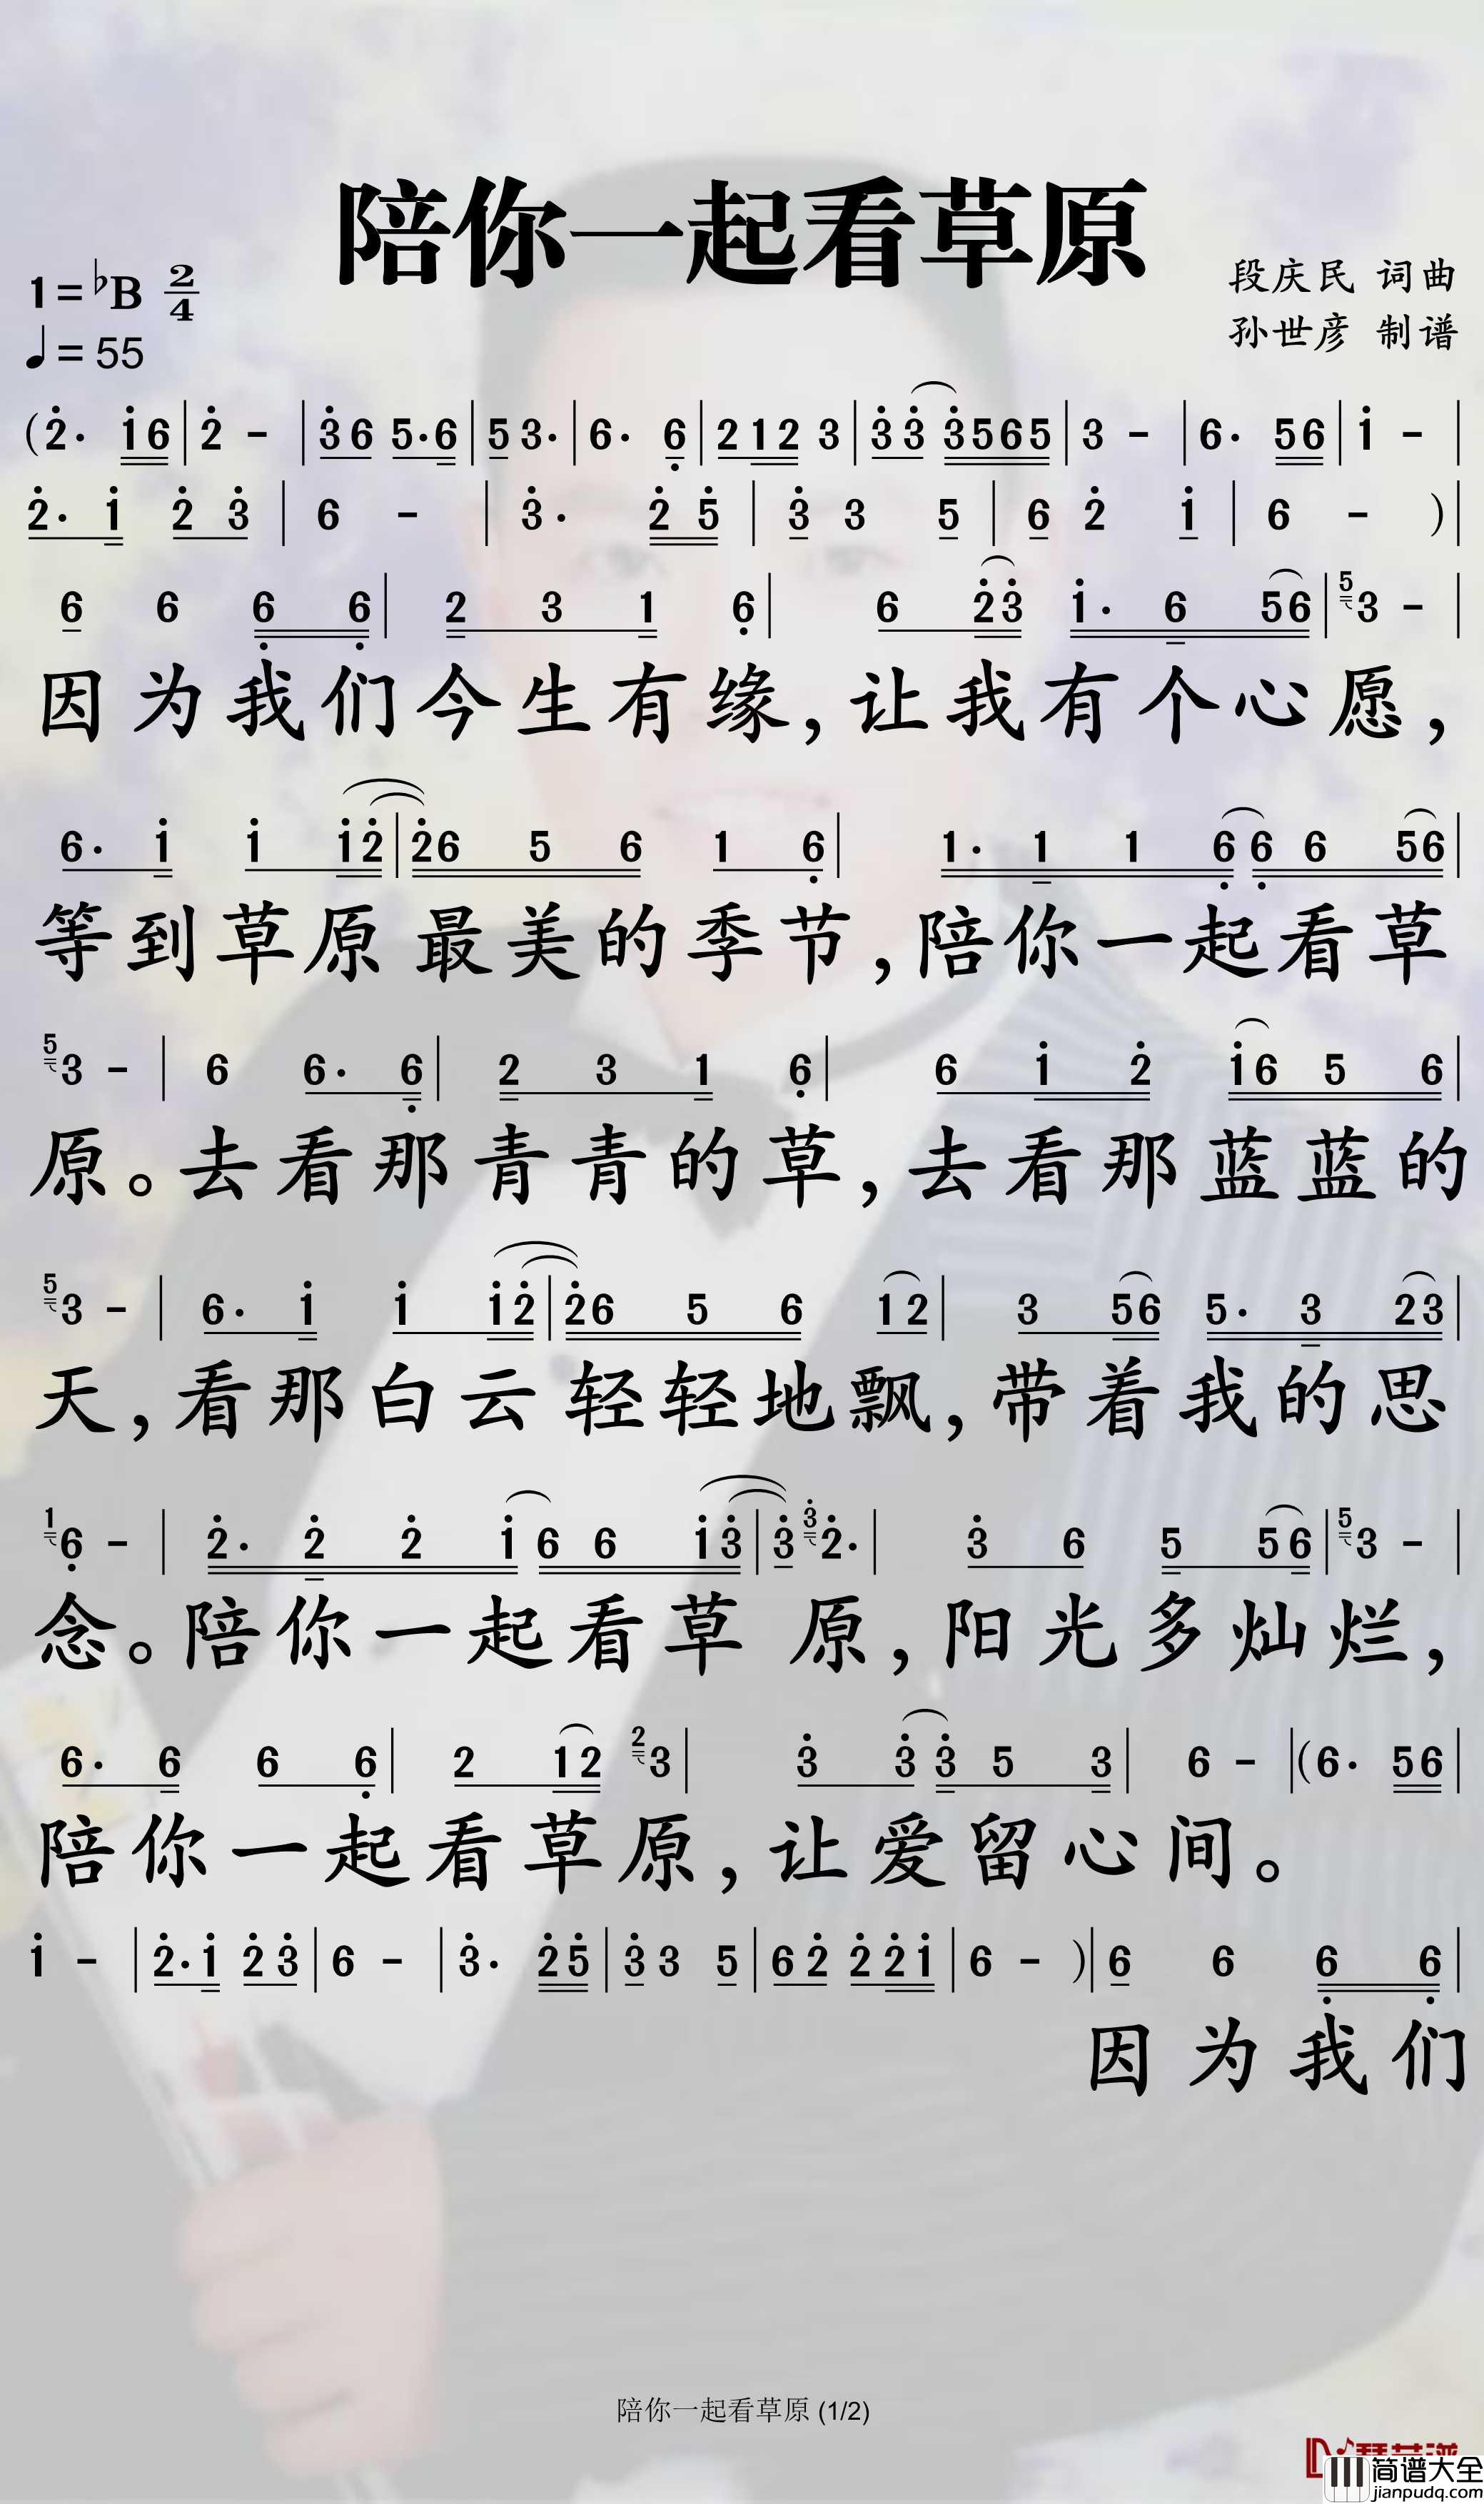 陪你一起看草原
1=♭B 2/4
♩=55
段庆民 词曲
孙世彦 制谱
(2̇. 1̇6 | 2̇ - | 3̇6 5.6 | 5 3. | 6. 6̣ | 212 3 | 3̇3̇ 3̇565 | 3 - | 6. 56 | 1̇ - |
2̇. 1̇ 2̇ 3̇ | 6 - | 3̇. 2̇ 5̇ | 3̇ 3 5 | 6 2̇ 1̇ | 6 - ) |
6 6 6̣ 6̣ | 2 3 1 6̣ | 6 2̇3̇ 1̇. 6 56 | 5 3 - |
因为我们今生有缘,让我有个心愿,
6. 1̇ 1̇ 1̇2̇ | 2̇6 5 6 1 6̣ | 1. 1 1 6̣ 6̣ 6 56 |
等到草原最美的季节,陪你一起看草
5 3 - | 6 6. 6̣ | 2 3 1 6̣ | 6 1̇ 2̇ 1̇6 5 6 |
原。去看那青青的草,去看那蓝蓝的
5 3 - | 6. 1̇ 1̇ 1̇2̇ | 2̇6 5 6 12 | 3 56 5. 3 23 |
天,看那白云轻轻地飘,带着我的思
1 6̣ - | 2̇. 2̇ 2̇ 1̇ 6 6 1̇3̇ | 3̇ 3̇ 2̇. | 3̇ 6 5 56 | 5 3 - |
念。陪你一起看草原,阳光多灿烂,
6. 6 6 6̣ | 2 12 2 3 | 3̇ 3̇ 3̇ 5 3 | 6 - | (6. 56 |
陪你一起看草原,让爱留心间。
1̇ - | 2̇. 1̇ 2̇ 3̇ | 6 - | 3̇. 2̇5̇ | 3̇ 3 5 | 6 2̇ 2̇ 2̇1̇ | 6 - ) | 6 6 6̣ 6̣ |
因为我们
陪你一起看草原 (1/2)
简谱大全
jianpudq.com